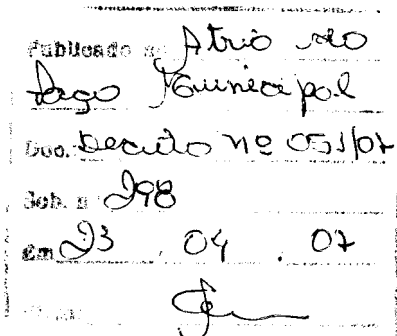 Publicado no Atrio do
Paço Municipal
Doc. Decreto nº 051/07
Sob. n 298
Em 23 . 04 . 07